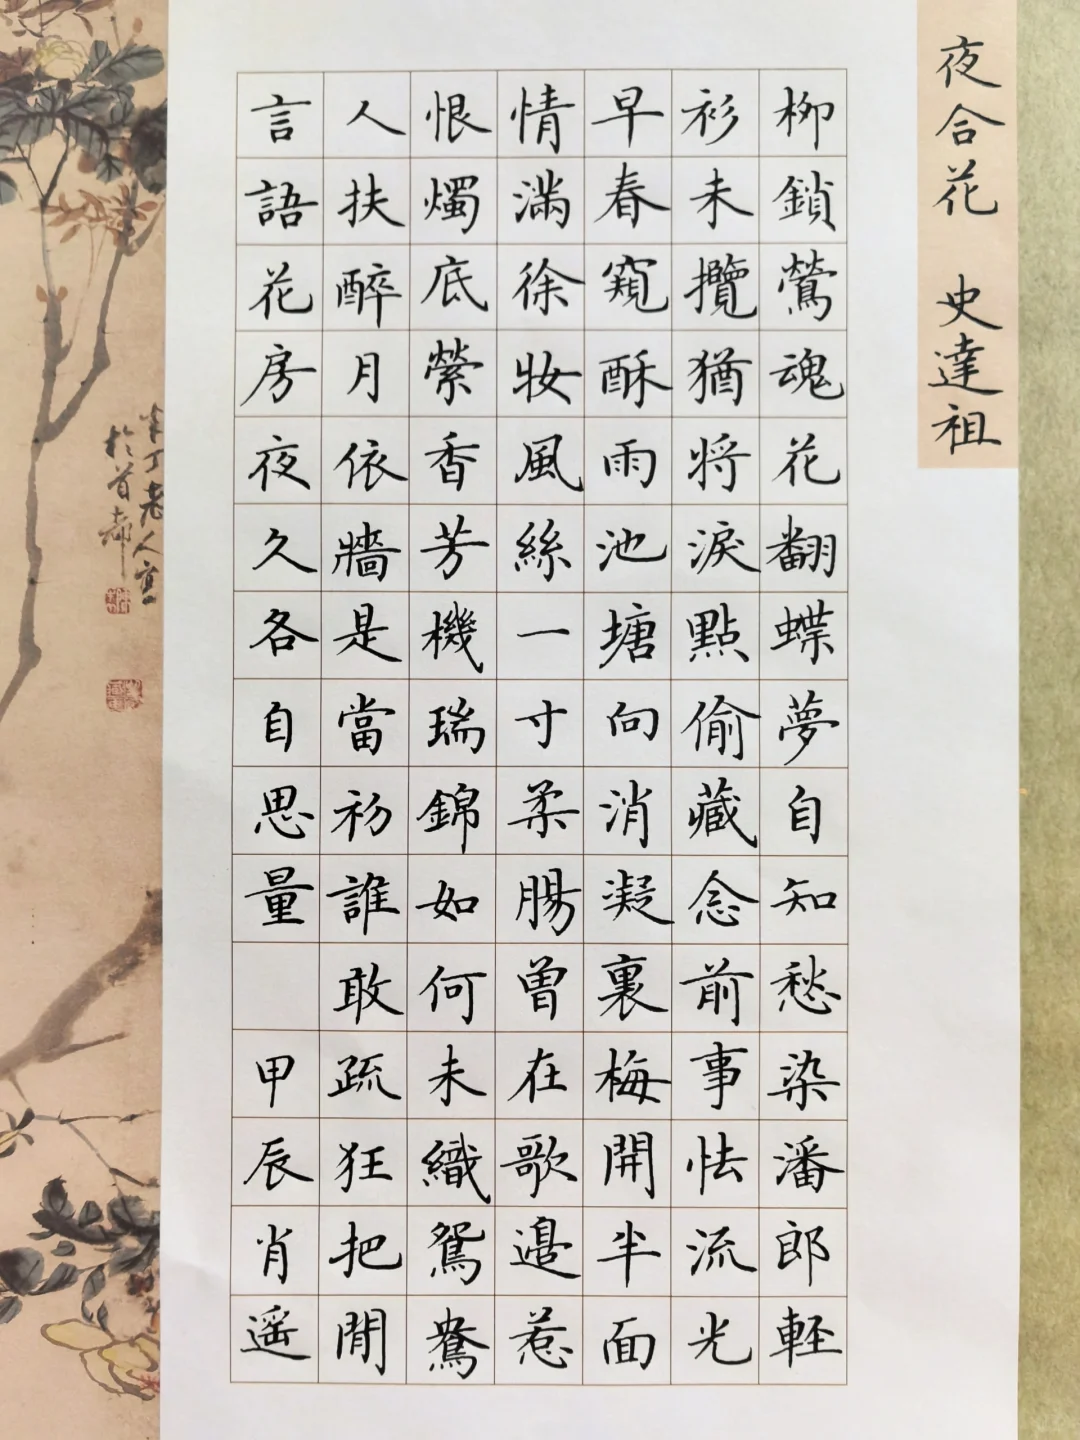 夜合花 史達祖
柳鎖鶯魂花翻蝶夢自知愁染潘郎輕
衫未攬猶將淚點偷藏念前事怯流光
早春窺酥雨池塘向消凝裏梅開半面
情滿徐妝風絲一寸柔腸曾在歌邊惹
恨燭底縈香芳機瑞錦如何未織鴛鴦
人扶醉月依牆是當初誰敢疏狂把閒
言語花房夜久各自思量 甲辰肖遥
辛丁老人寫
於首都